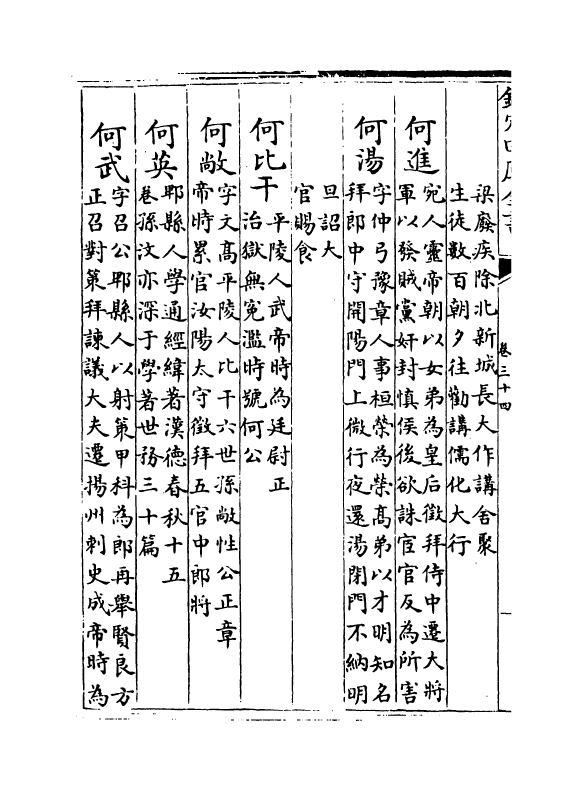 欽定四庫全書
卷三十四
梁廢疾除北新城長大作講舍聚
生徒數百朝夕往勸講儒化大行
何進
宛人靈帝朝以女弟為皇后徵拜侍中遷大將
軍以發賊黨奸封慎侯後欲誅宦官反為所害
何湯
字仲弓豫章人事桓榮為榮高弟以才明知名
拜郎中守開陽門上微行夜還湯閉門不納明
旦詔大
官賜食
何比干
平陵人武帝時為廷尉正
治獄無冤濫時號何公
何敞
字文高平陵人比干六世孫敞性公正章
帝時累官汝陽太守徵拜五官中郎將
何英
郫縣人學通經緯著漢德春秋十五
卷孫汶亦深于學著世務三十篇
何武
字召公郫縣人以射策甲科為郎再舉賢良方
正召對策拜諫議大夫遷揚州刺史成帝時為